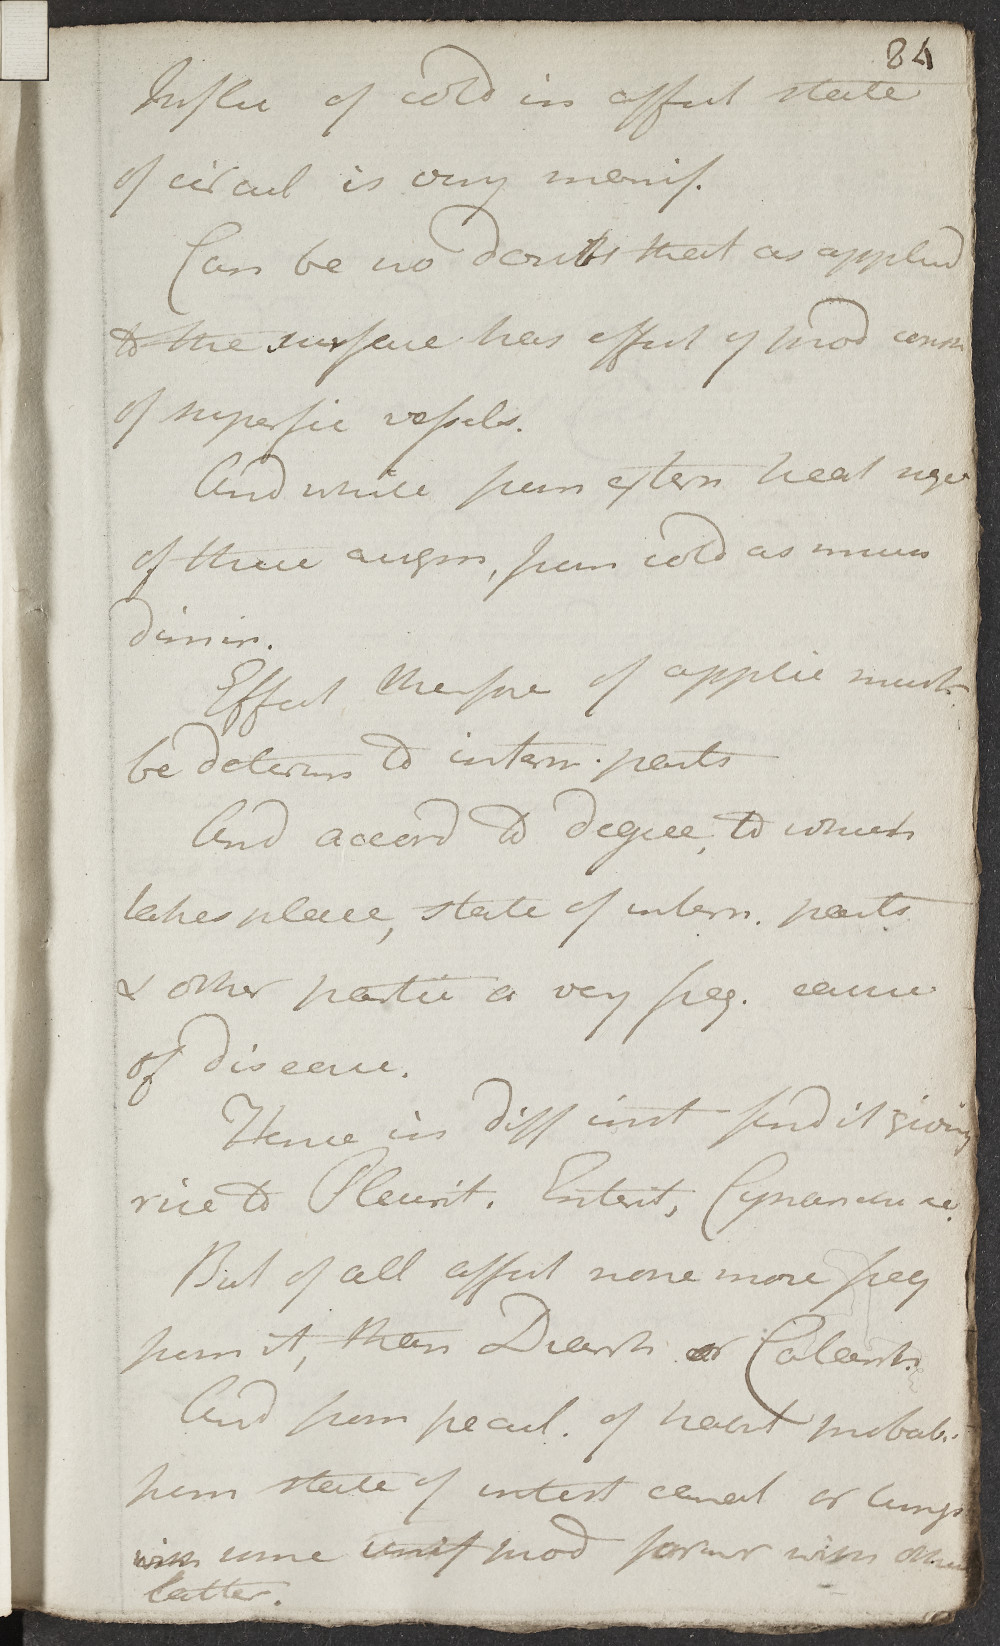 84
Influe of cold in affect state
of circul is very manif.
Can be no doubt that as applied
to the surface has effect of prod constr
of superfic vessels.
And while from extern heat
of these augm, from cold as much
dimin.
Effect therefore of applic must
be determ to intern. parts
And accord to degree, to which
takes place, state of intern. parts
& other partic a very freq. cause
of disease.
Hence in diff inst find it giving
rise to Pleurit. Enterit, Cynanche &c.
But of all affect none more freq
from it, than Diarrh or Catarrh.
And from pecul. of habit probab.
from state of intest canal or lungs
with some unif prod former with others
latter.